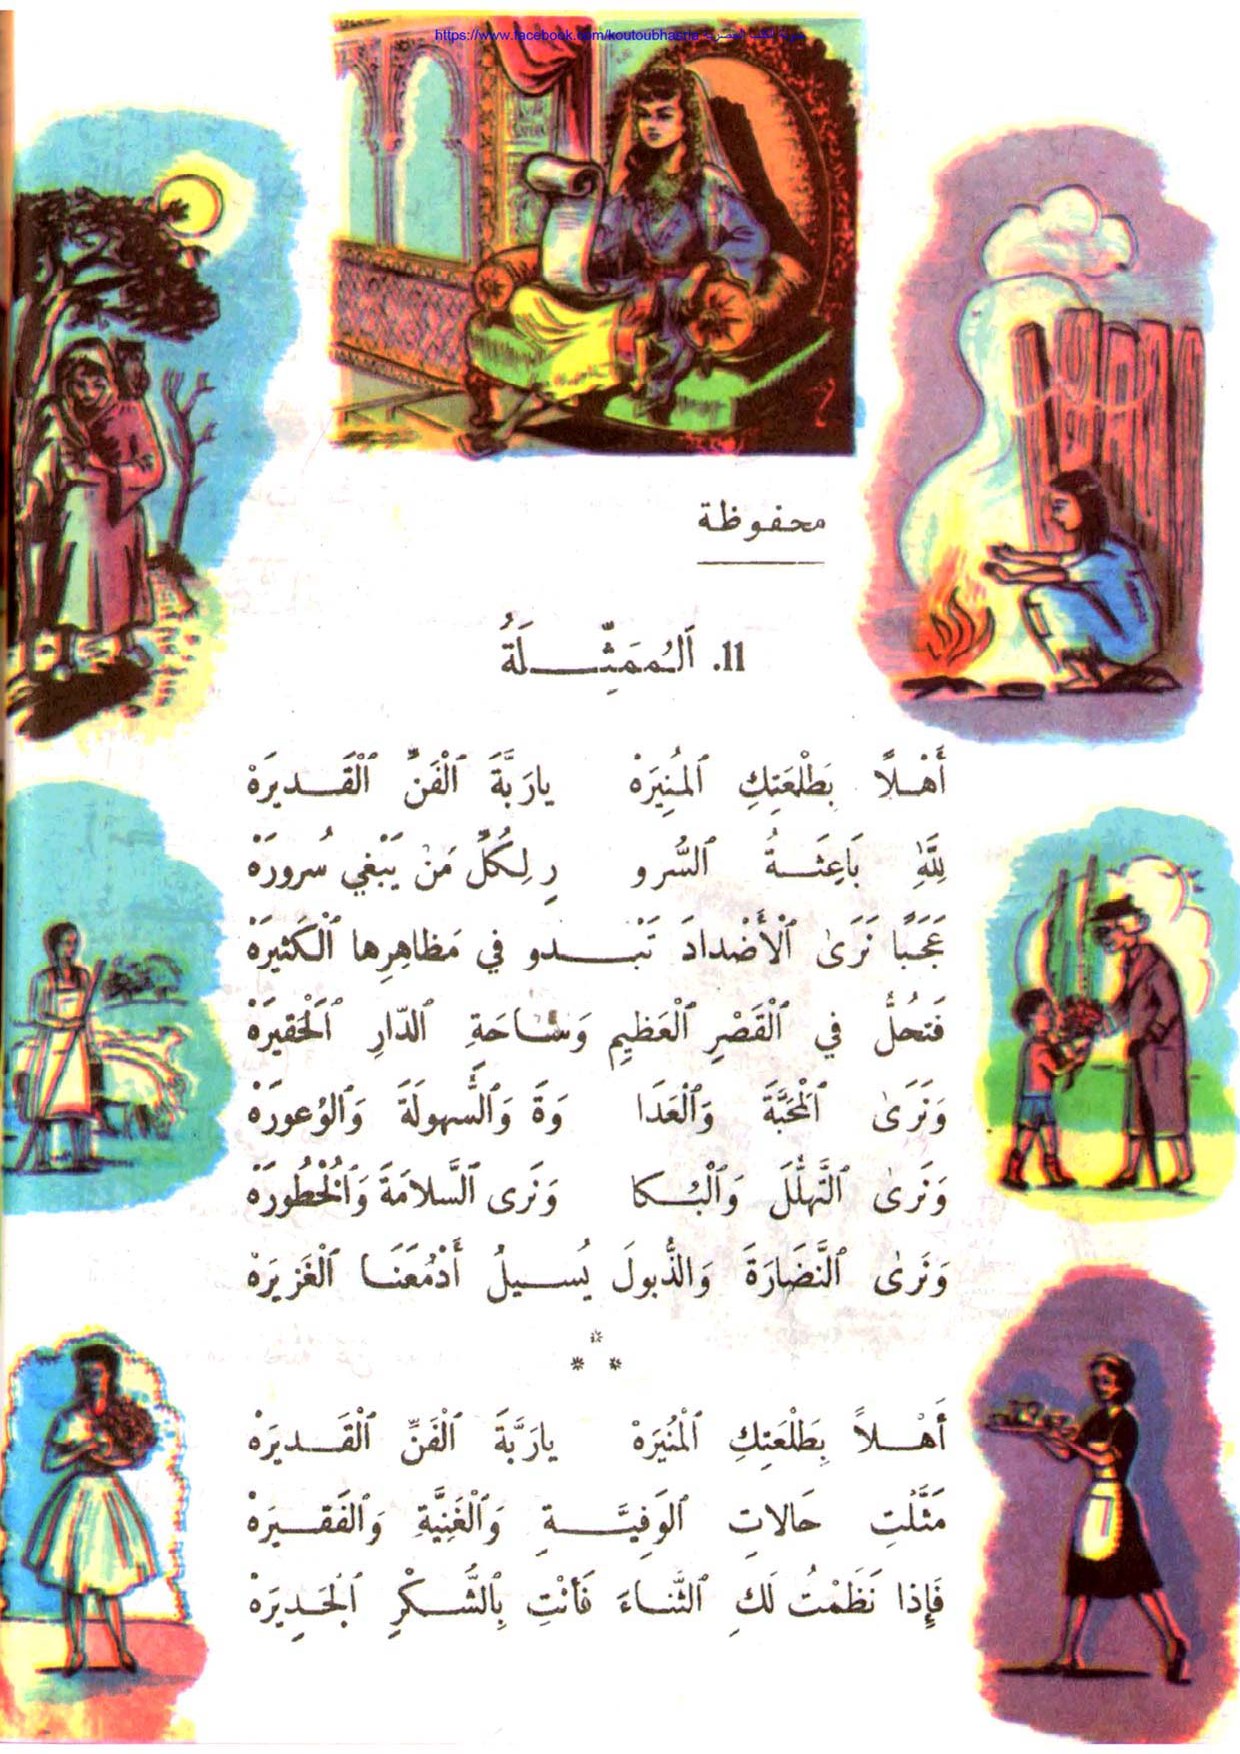 https://www.facebook.com/koutoubhasria
محفوظة
11. اَلْمُمَثِّلَةُ
أَهْلًا بِطَلْعَتِكِ ٱلْمُنِيَرَهْ يارَبَّةَ ٱلْفَنِّ ٱلْقَديرَهْ
لِلَّهِ بَاعِثَةُ ٱلسُّرو رِ لِكُلِّ مَنْ يَبْغي سُرورَهْ
عَجَبًا نَرَىٰ ٱلْأَضْدادَ تَبْدو في مَظاهِرِها ٱلْكَثيرَهْ
فَتَحُلُّ في ٱلْقَصْرِ ٱلْعَظيمِ وَسَاحَةِ ٱلدّارِ ٱلْحَقيرَهْ
وَنَرَىٰ ٱلْمَحَبَّةَ وَٱلْعَدَا وَةَ وَٱلسُّهولَةَ وَٱلوُعورَهْ
وَنَرَىٰ ٱلتَّهَلُّلَ وَٱلْبُكا وَنَرى ٱلسَّلامَةَ وَٱلْخُطُورَهْ
وَنَرَىٰ ٱلنَّضَارَةَ وَالذُّبولَ يُسيلُ أَدْمُعَنَا ٱلْغَزيرَهْ
* * *
أَهْلاً بِطَلْعَتِكِ ٱلْمُنيَرَهْ يارَبَّةَ ٱلْفَنِّ ٱلْقَديرَهْ
مَثَّلْتِ حَالاتِ ٱلوَفِيَّةِ وَٱلْغَنِيَّةِ وَٱلفَقيرَهْ
فَإِذا نَظَمْتُ لَكِ ٱلثَّناءَ فَأَنْتِ بِٱلشُّكْرِ ٱلْجَديرَهْ